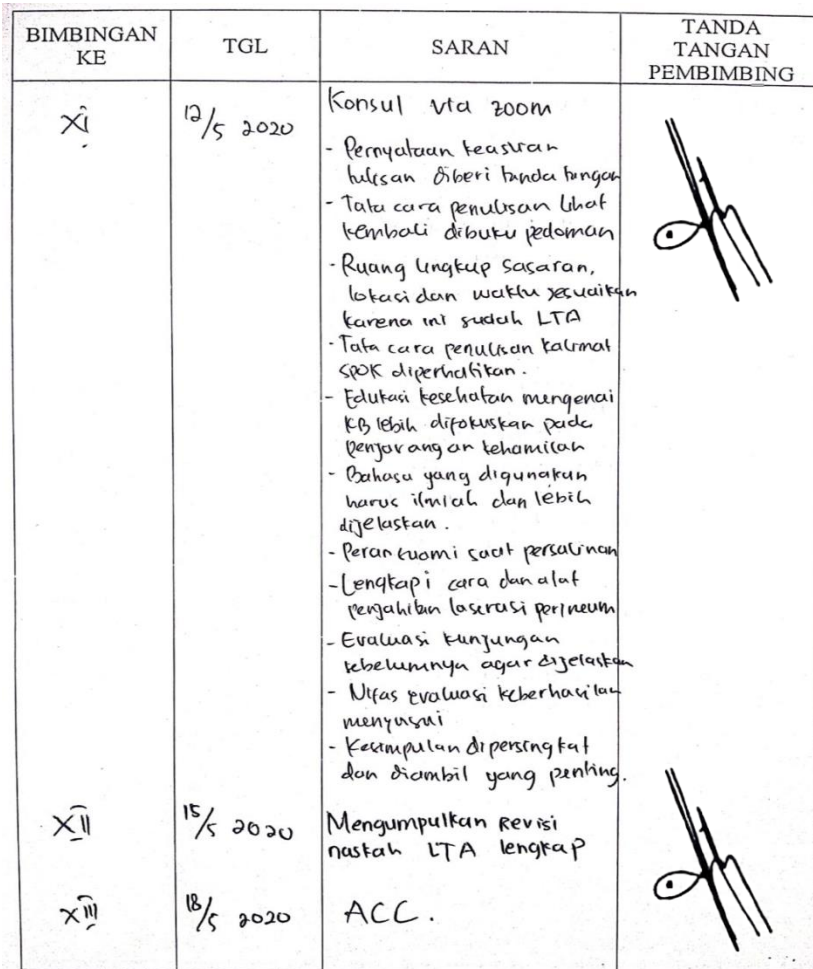 BIMBINGAN KE
TGL
SARAN
TANDA TANGAN PEMBIMBING
XI
12/5 2020
Konsul via zoom
- Pernyataan keaslian
tulisan diberi tanda tangan
- Tata cara penulisan lihat
kembali dibuku pedoman
- Ruang lingkup sasaran,
lokasi dan waktu sesuaikan
karena ini sudah LTA
- Tata cara penulisan kalimat
SPOK diperhatikan.
- Edukasi kesehatan mengenai
KB lebih difokuskan pada
penjarangan kehamilan
- Bahasa yang digunakan
harus ilmiah dan lebih
dijelaskan.
- Peran suami saat persalinan
- Lengkapi cara dan alat
penjahitan laserasi perineum
- Evaluasi kunjungan
sebelumnya agar dijelaskan
- Nifas evaluasi keberhasilan
menyusui
- Kesimpulan dipersingkat
dan diambil yang penting.
XII
15/5 2020
Mengumpulkan Revisi
naskah LTA lengkap
XIII
18/5 2020
ACC.